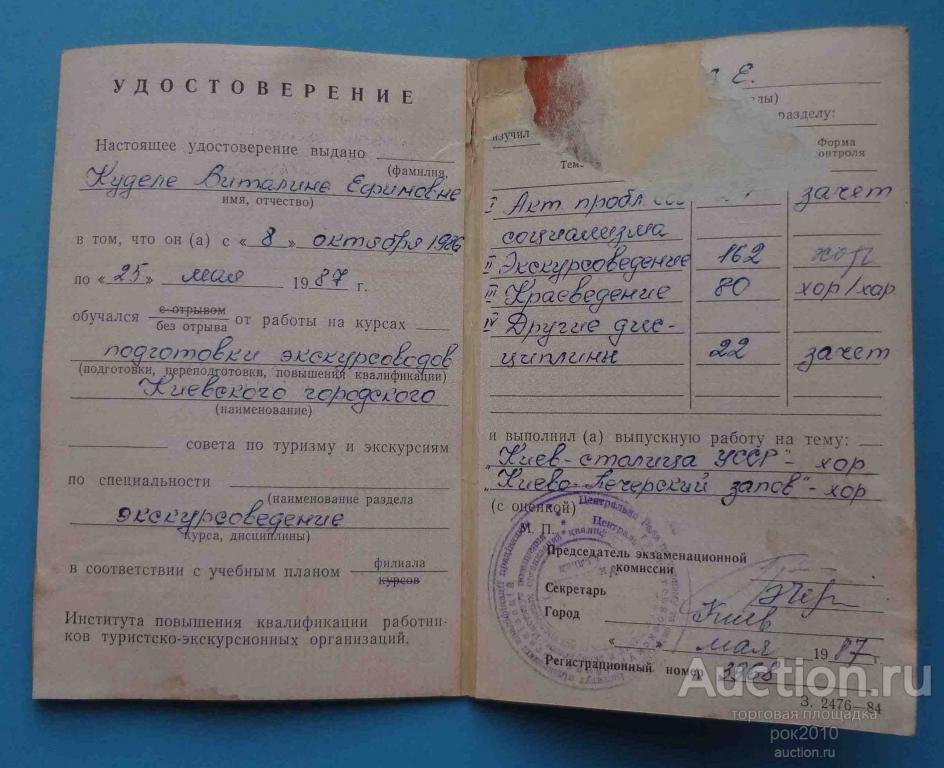 УДОСТОВЕРЕНИЕ
Настоящее удостоверение выдано
(фамилия,
Куделе Виталине Ефимовне
имя, отчество)
в том, что он (а) с «8» октября 1986
по «25» мая 1987 г.
обучался с отрывом
без отрыва от работы на курсах
подготовки экскурсоводов
(подготовки, переподготовки, повышения квалификации)
Киевского городского
(наименование)
совета по туризму и экскурсиям
по специальности
(наименование раздела
экскурсоведение
курса, дисциплины)
в соответствии с учебным планом филиала
курсов
Института повышения квалификации работни-
ков туристско-экскурсионных организаций.
Е.
разделу:
изучил
Форма
контроля
I Акт. пробл. зачет
социализма
II Экскурсоведение 162 хор
III Краеведение 80 хор/хор
IV Другие дис-
циплины 22 зачет
и выполнил (а) выпускную работу на тему:
"Киев-столица УССР"- хор
"Киево-Печерский запов"- хор
(с оценкой)
М. П.
Председатель экзаменационной
комиссии
Секретарь
Город Киев
« » мая 1987 г.
Регистрационный номер 3968
З. 2476—84
Auction.ru
торговая площадка
рок2010
auction.ru